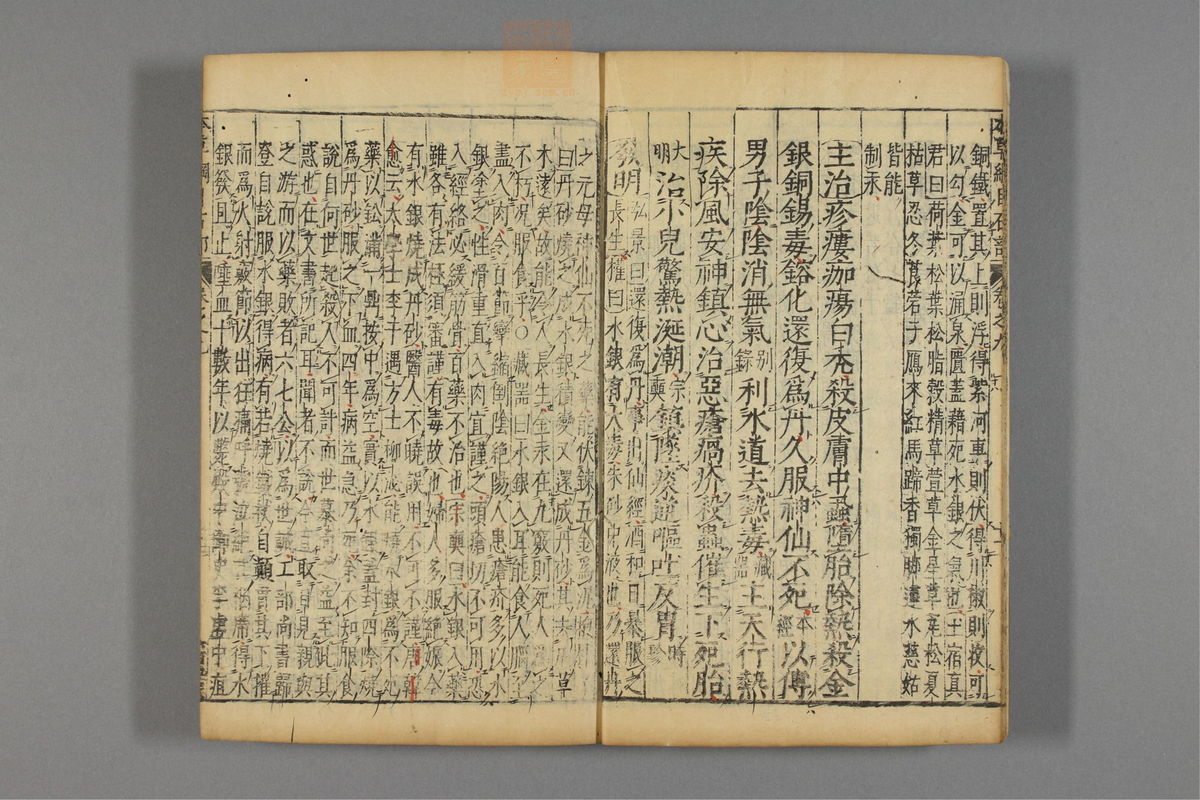 銅鐵置其上則浮得紫河車則伏得川椒則收可
以勾金可以湧泉匱蓋藉死水銀之氣也土宿真
君曰荷葉松葉松脂穀精草萱草金星草瓦松夏
枯草忍冬莨菪子鴈來紅馬蹄香獨脚蓮水慈姑
皆能
制汞
主治疹瘻痂瘍白禿殺皮膚中蝨墮胎除熱殺金
銀銅錫毒鎔化還復爲丹久服神仙不死本經以傅
男子陰陰消無氣别錄利水道去熱毒藏器主天行熱
疾除風安神鎮心治惡瘡瘑疥殺蟲催生下死胎
大明治小兒驚熱涎潮宗奭鎮墜痰逆嘔吐反胃時珍
發明弘景曰還復爲丹事出仙經酒和日暴服之
長生權曰水銀有大毒朱砂中液也乃還丹
之元母神仙不死之藥能伏鍊五金爲泥
曰丹砂燒之成水銀積變又還成丹砂其去凡草
木遠矣故能令人長生金汞在九竅則死人爲之
不朽况服食乎〇藏器曰水銀入耳能食人腦至
盡入肉令百節攣縮倒陰絶陽人患瘡疥多以水
銀塗之性滑重直入肉宜謹之頭瘡切不可用恐
入經絡必緩筋骨百藥不治也宗奭曰水銀入藥
雖各有法極須審謹有毒故也婦人多服絶娠今
有水銀燒成丹砂醫人不曉誤用不可不謹唐韓
愈云太學士李干遇方士柳泌能燒水銀爲不死
藥以鉛滿一鼎按中爲空實以水銀蓋封四際燒
爲丹砂服之下血四年病益急乃死余不知服食
說自何世起殺人不可計而世慕尚之益至此其
惑也在文書所記耳聞者不說今直取目見親與
之游而以藥敗者六七公以爲世誡工部尚書歸
登自說服水銀得病有若燒鐵杖自顛貫其下摧
而爲火射竅節以出狂痛呼號泣絶其裀席得水
銀發且止唾血十數年以斃殿中御史李虛中疽